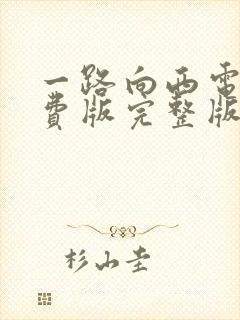 一路向西电
费版完整版
杉山圭